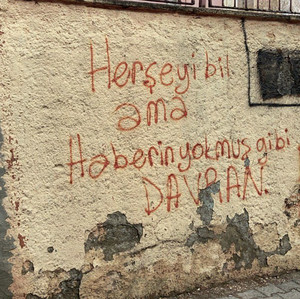 Herşeyi bil
ama
Haberin yokmuş gibi
DAVRAN.